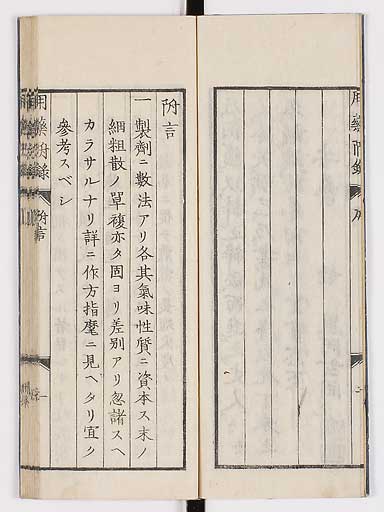 附言
一製劑ニ數法アリ各其氣味性質ニ資本ス末ノ
細粗散ノ單複亦タ固ヨリ差別アリ忽諸スヘ
カラサルナリ詳ニ作方指麾ニ見ヘタリ宜ク
參考スベシ
用藥附錄
附言
一
用藥附錄